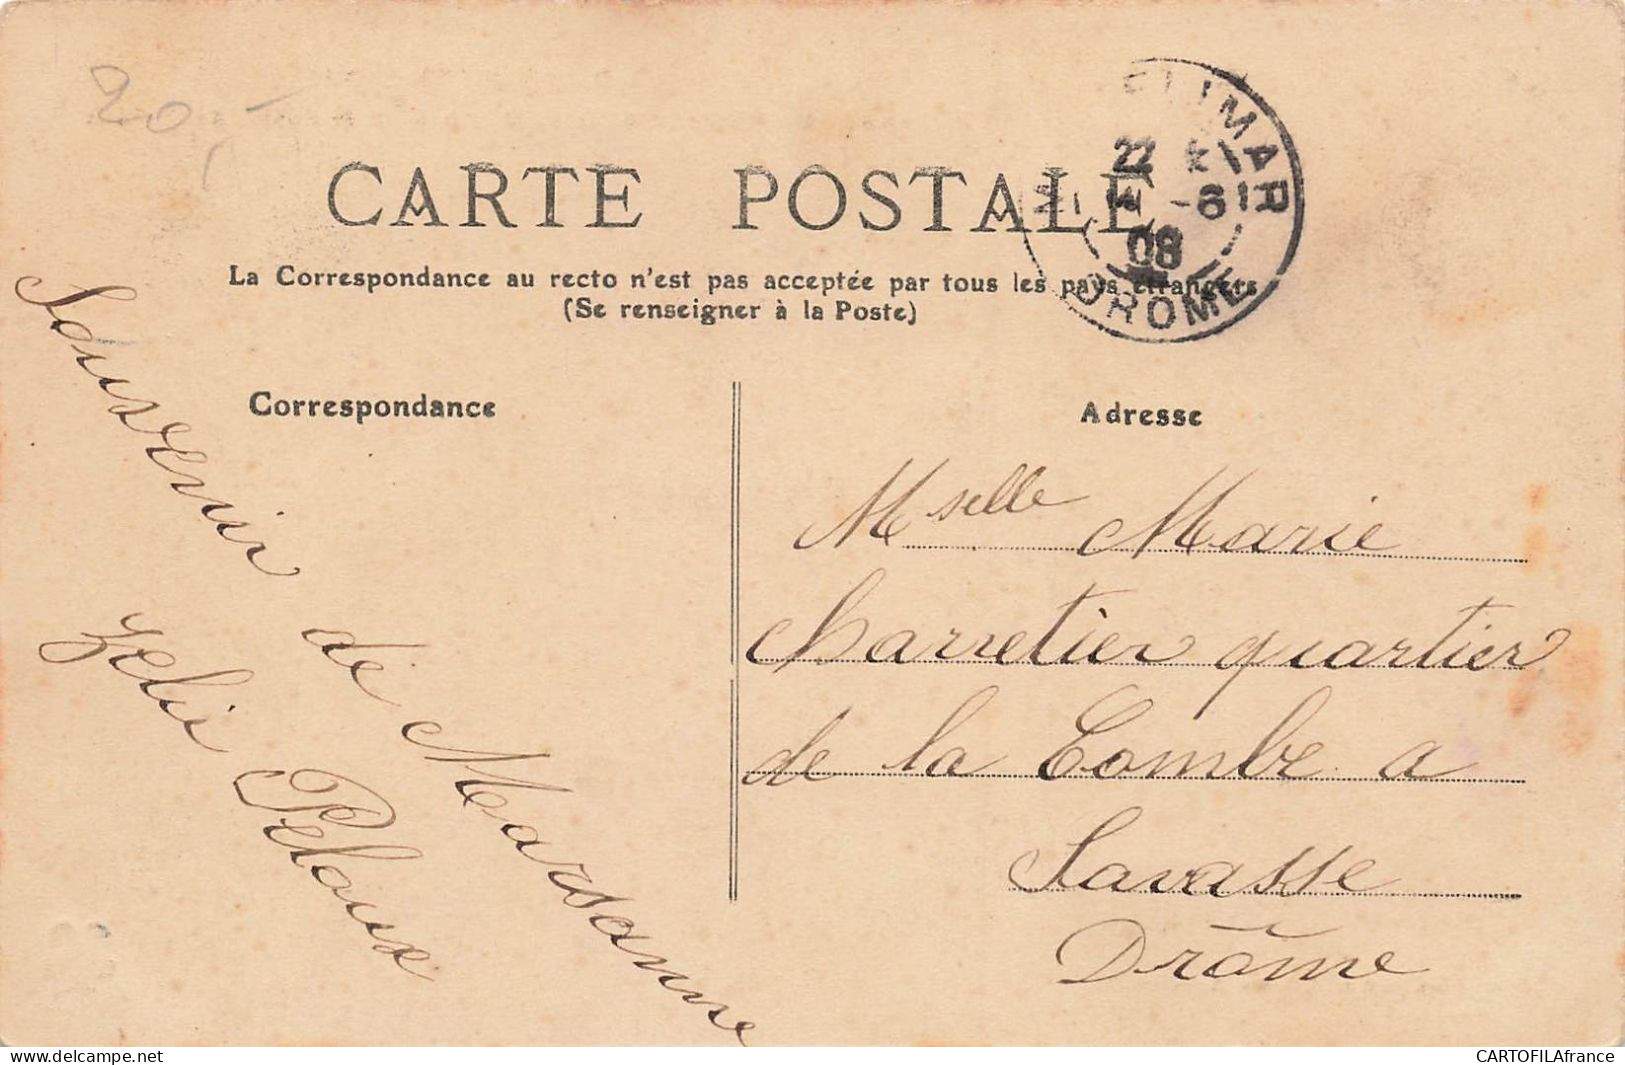 20
CARTE POSTALE
La Correspondance au recto n'est pas acceptée par tous les pays étrangers
(Se renseigner à la Poste)
ELIMAR
22
08
DROME
Correspondance
Adresse
Souvenir de Marsanne
Zelie Peloux
Mselle Marie
Charretier quartier
de la Combe a
Savasse
Drôme
delcampe.net
CARTOFILAfrance